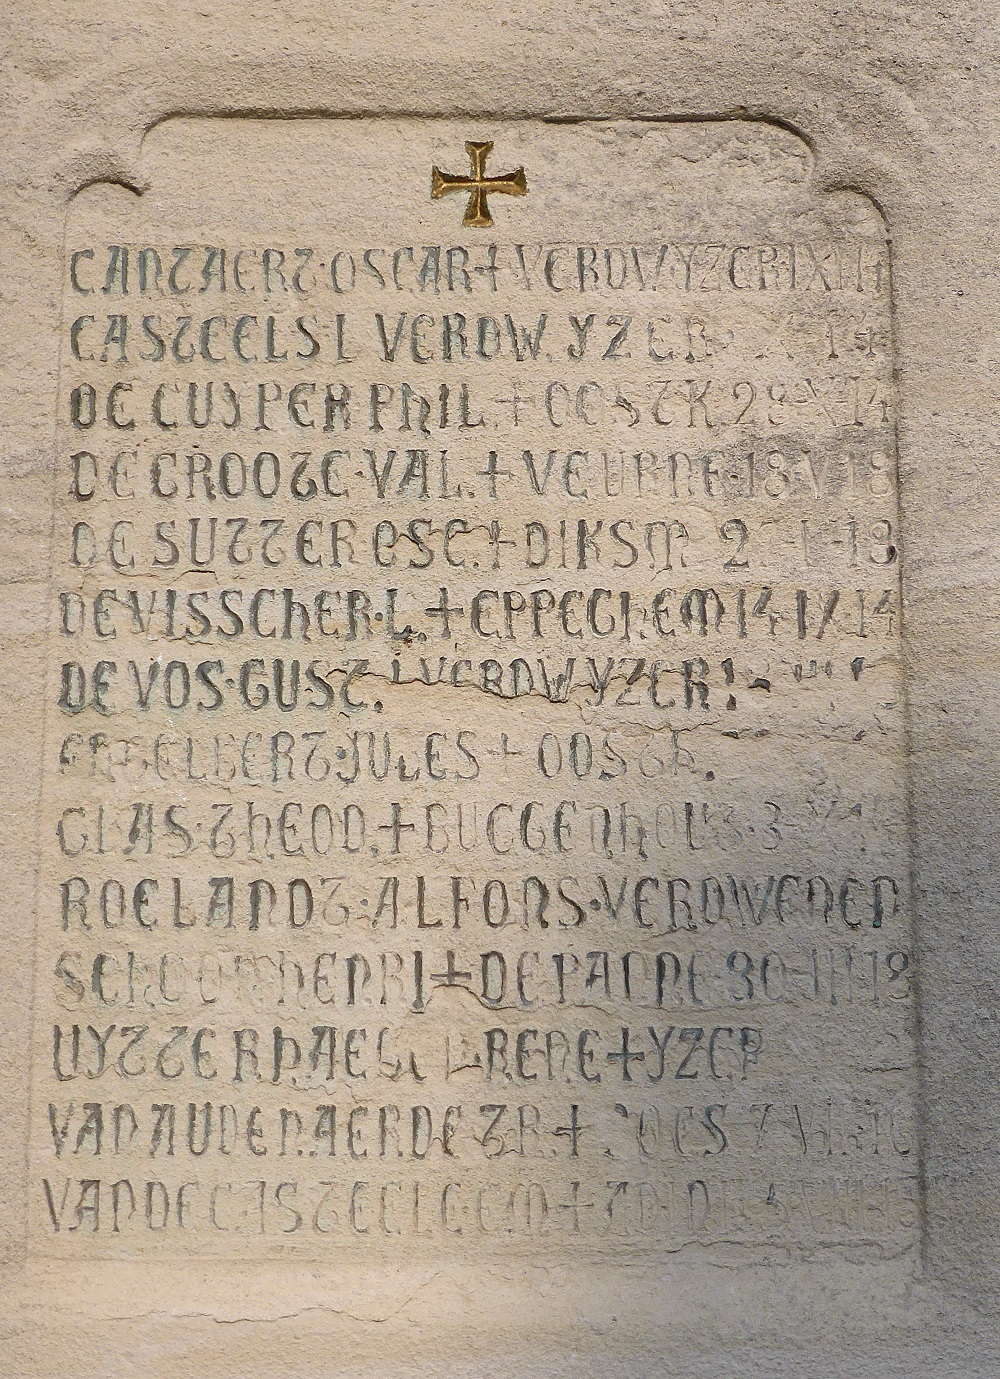 CANTAERT·OSCAR + VERDW. YZER·IX·14
CASTEELS·L VERDW. YZER 14
DE CUYPER PHIL. + OOSTK. 29·X·14
DE GROOTE·VAL. + VEURNE·18·V·18
DE SUTTER OSC. + DIKSM
DE VISSCHER·L. + EPPEGHEM 14·IX·14
DE VOS·GUST. VERDW YZER
JULES + OOSTK.
GLAS·THEOD. + BUGGENHOUT·3
ROELANDT·ALFONS·VERDWENEN
HENRI + DE PANNE·30·III·18
UYTTERHAEGEN RENE + YZER
VAN AUDENAERDE FR +
VAN DE CASTEELE·EM +